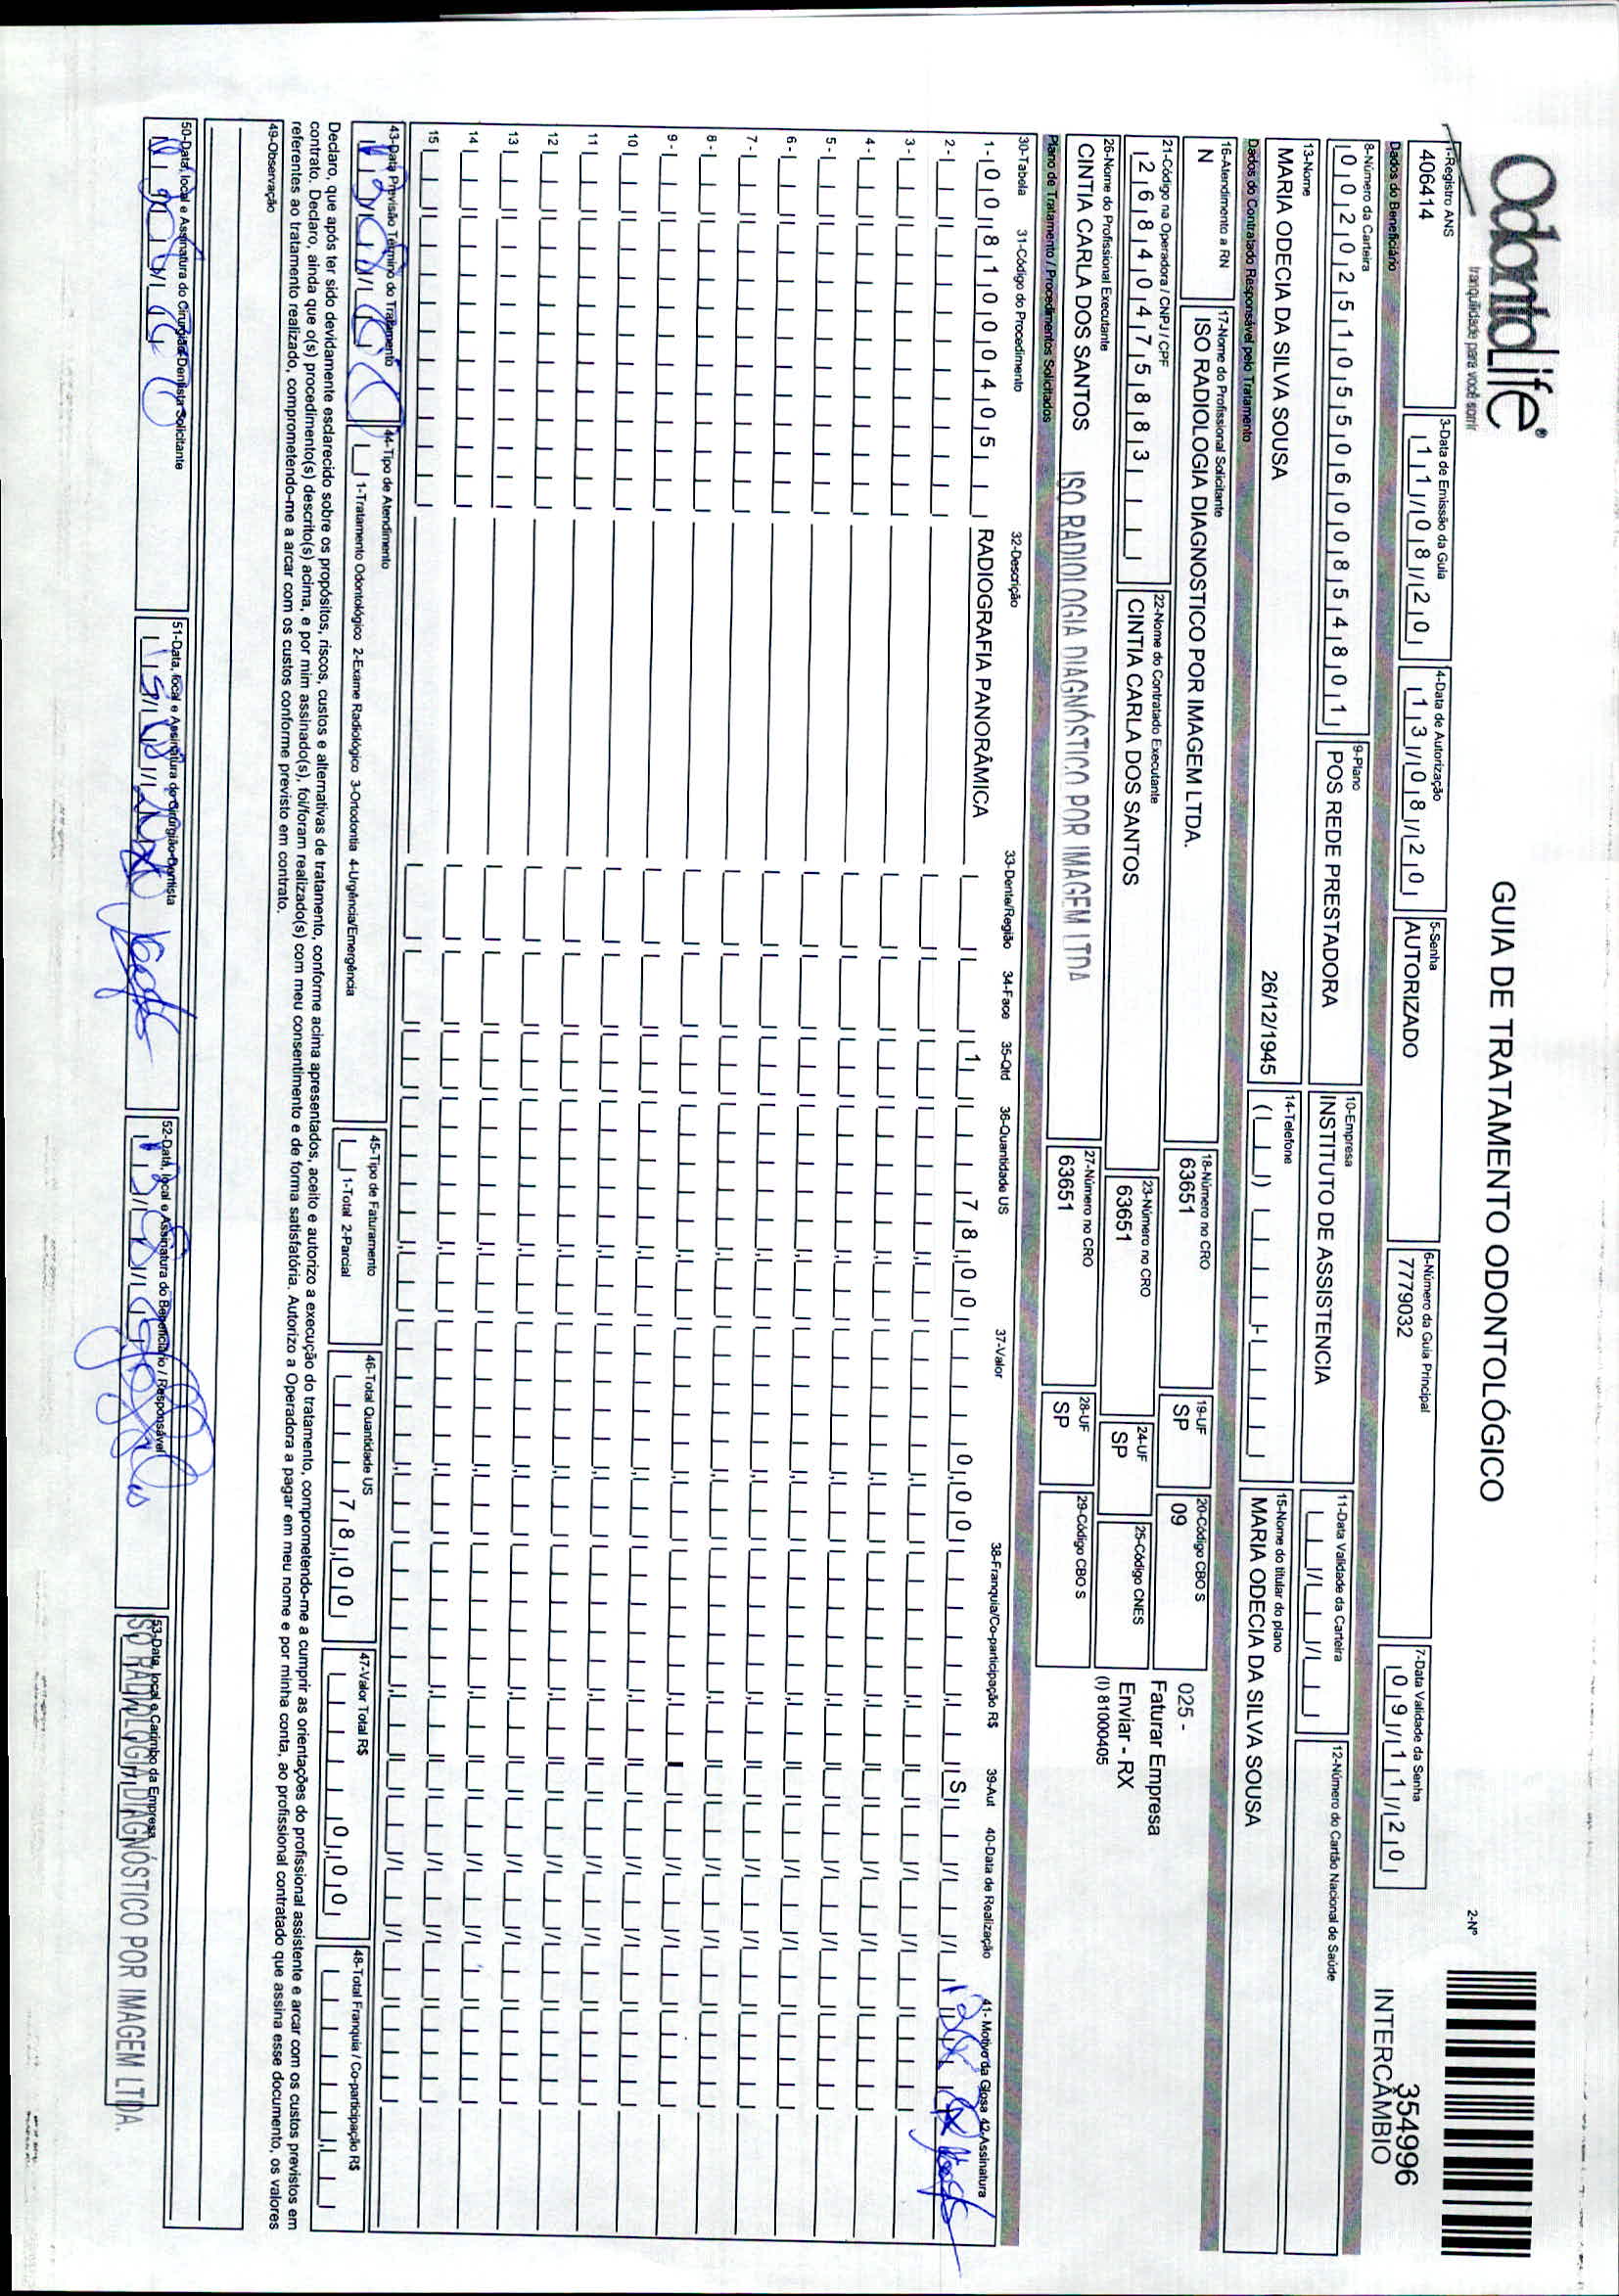 OdontoLife®
tranquilidade para você sorrir
GUIA DE TRATAMENTO ODONTOLÓGICO
2-Nº
354996
INTERCÂMBIO
1-Registro ANS
406414
3-Data de Emissão da Guia
11/08/20
4-Data de Autorização
13/08/20
5-Senha
AUTORIZADO
6-Número da Guia Principal
7779032
7-Data Validade da Senha
09/11/20
Dados do Beneficiário
8-Número da Carteira
00202510550600854801
9-Plano
POS REDE PRESTADORA
10-Empresa
INSTITUTO DE ASSISTENCIA
11-Data Validade da Carteira
12-Número do Cartão Nacional de Saúde
13-Nome
MARIA ODECIA DA SILVA SOUSA
26/12/1945
14-Telefone
15-Nome do titular do plano
MARIA ODECIA DA SILVA SOUSA
Dados do Contratado Responsável pelo Tratamento
16-Atendimento a RN
N
17-Nome do Profissional Solicitante
ISO RADIOLOGIA DIAGNOSTICO POR IMAGEM LTDA.
18-Número no CRO
63651
19-UF
SP
20-Código CBO S
09
025 -
Faturar Empresa
Enviar - RX
(I) 81000405
21-Código na Operadora / CNPJ / CPF
26840475883
22-Nome do Contratado Executante
CINTIA CARLA DOS SANTOS
23-Número no CRO
63651
24-UF
SP
25-Código CNES
26-Nome do Profissional Executante
CINTIA CARLA DOS SANTOS
ISO RADIOLOGIA DIAGNÓSTICO POR IMAGEM LTDA
27-Número no CRO
63651
28-UF
SP
29-Código CBO S
Plano de Tratamento / Procedimentos Solicitados
30-Tabela 31-Código do Procedimento 32-Descrição 33-Dente/Região 34-Face 35-Qtd 36-Quantidade US 37-Valor 38-Franquia/Co-participação R$ 39-Aut 40-Data de Realização 41- Motivo da Glosa 42-Assinatura
1- 00 81000405 RADIOGRAFIA PANORÂMICA 1 78,00 0,00 S
2-
3-
4-
5-
6-
7-
8-
9-
10
11
12
13
14
15
43-Data Previsão Término do Tratamento
44-Tipo de Atendimento
1-Tratamento Odontológico 2-Exame Radiológico 3-Ortodontia 4-Urgência/Emergência
45-Tipo de Faturamento
1-Total 2-Parcial
46-Total Quantidade US
78,00
47-Valor Total R$
0,00
48-Total Franquia / Co-participação R$
Declaro, que após ter sido devidamente esclarecido sobre os propósitos, riscos, custos e alternativas de tratamento, conforme acima apresentados, aceito e autorizo a execução do tratamento, comprometendo-me a cumprir as orientações do profissional assistente e arcar com os custos previstos em
contrato. Declaro, ainda que o(s) procedimento(s) descrito(s) acima, e por mim assinado(s), foi/foram realizado(s) com meu consentimento e de forma satisfatória. Autorizo a Operadora a pagar em meu nome e por minha conta, ao profissional contratado que assina esse documento, os valores
referentes ao tratamento realizado, comprometendo-me a arcar com os custos conforme previsto em contrato.
49-Observação
50-Data, local e Assinatura do Cirurgião-Dentista Solicitante
51-Data, local e Assinatura do Cirurgião-Dentista
52-Data, local e Assinatura do Beneficiário / Responsável
53-Data, local e Carimbo da Empresa
ISO RADIOLOGIA DIAGNÓSTICO POR IMAGEM LTDA.